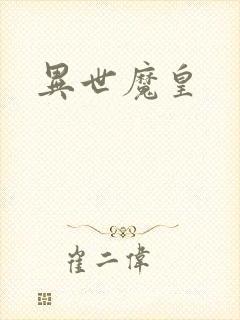 異世魔皇
崔二偉